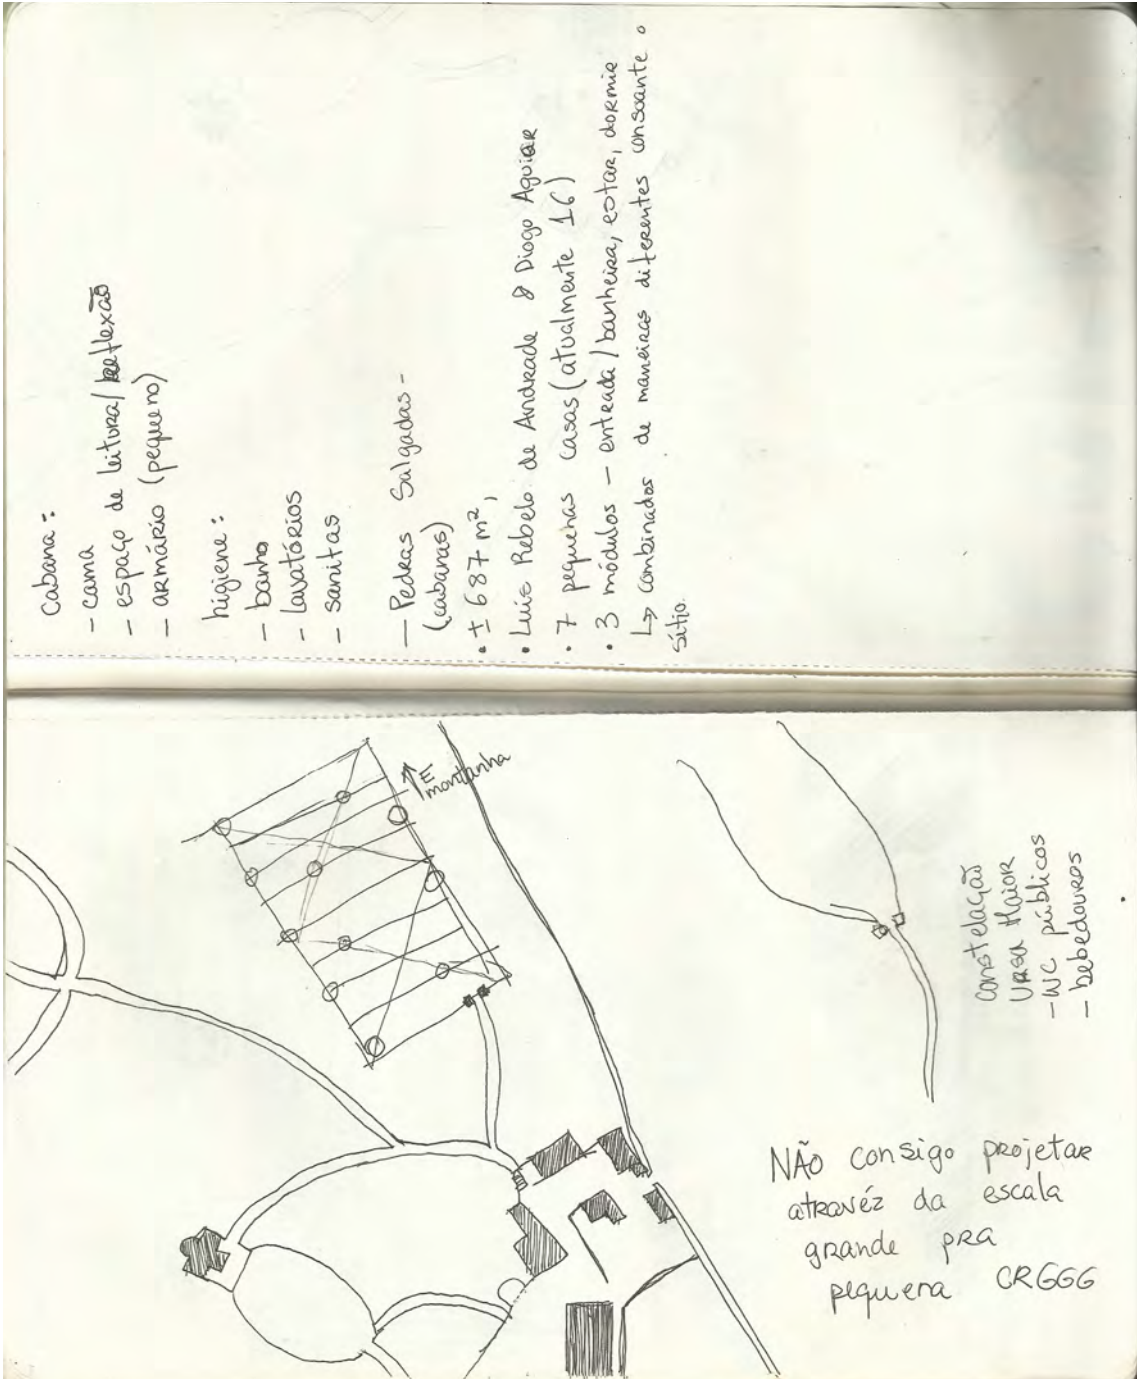 Cabana:
- cama
- espaço de leitura/reflexão
- armário (pequeno)
higiene:
- banho
- lavatórios
- sanitas
- Pedras Salgadas -
(cabanas)
• ± 687 m²,
• Luís Rebelo de Andrade & Diogo Aguiar
• 7 pequenas casas (atualmente 16)
• 3 módulos - entrada/banheira, estar, dormir
↳ combinados de maneiras diferentes consoante o
sítio.
E
montanha
constelação
Ursa Maior
- WC públicos
- bebedouros
NÃO consigo projetar
atravéz da escala
grande pra
pequena CRGGG